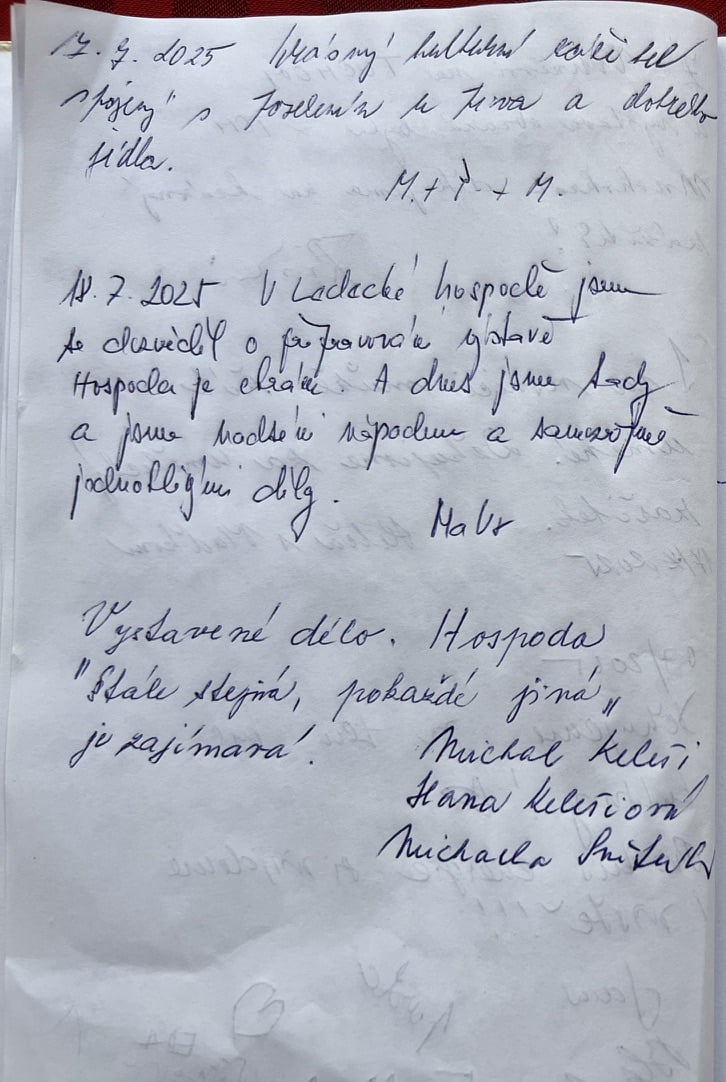 17. 7. 2025 krásný kulturní zážitek
spojený s posezením u piva a dobrého
jídla.
M. + + M.
18. 7. 2025 V Ladecké hospodě jsme
se dozvěděl o připravován výstavě
Hospoda je chrám. A dnes jsme tady
a jsme nadšeni nápadem a samozřejmě
jednotlivými díly.
Vystavené dílo. Hospoda
"Stále stejná, pokaždé jiná„
je zajímavá.
Michal
Hana
Michaela